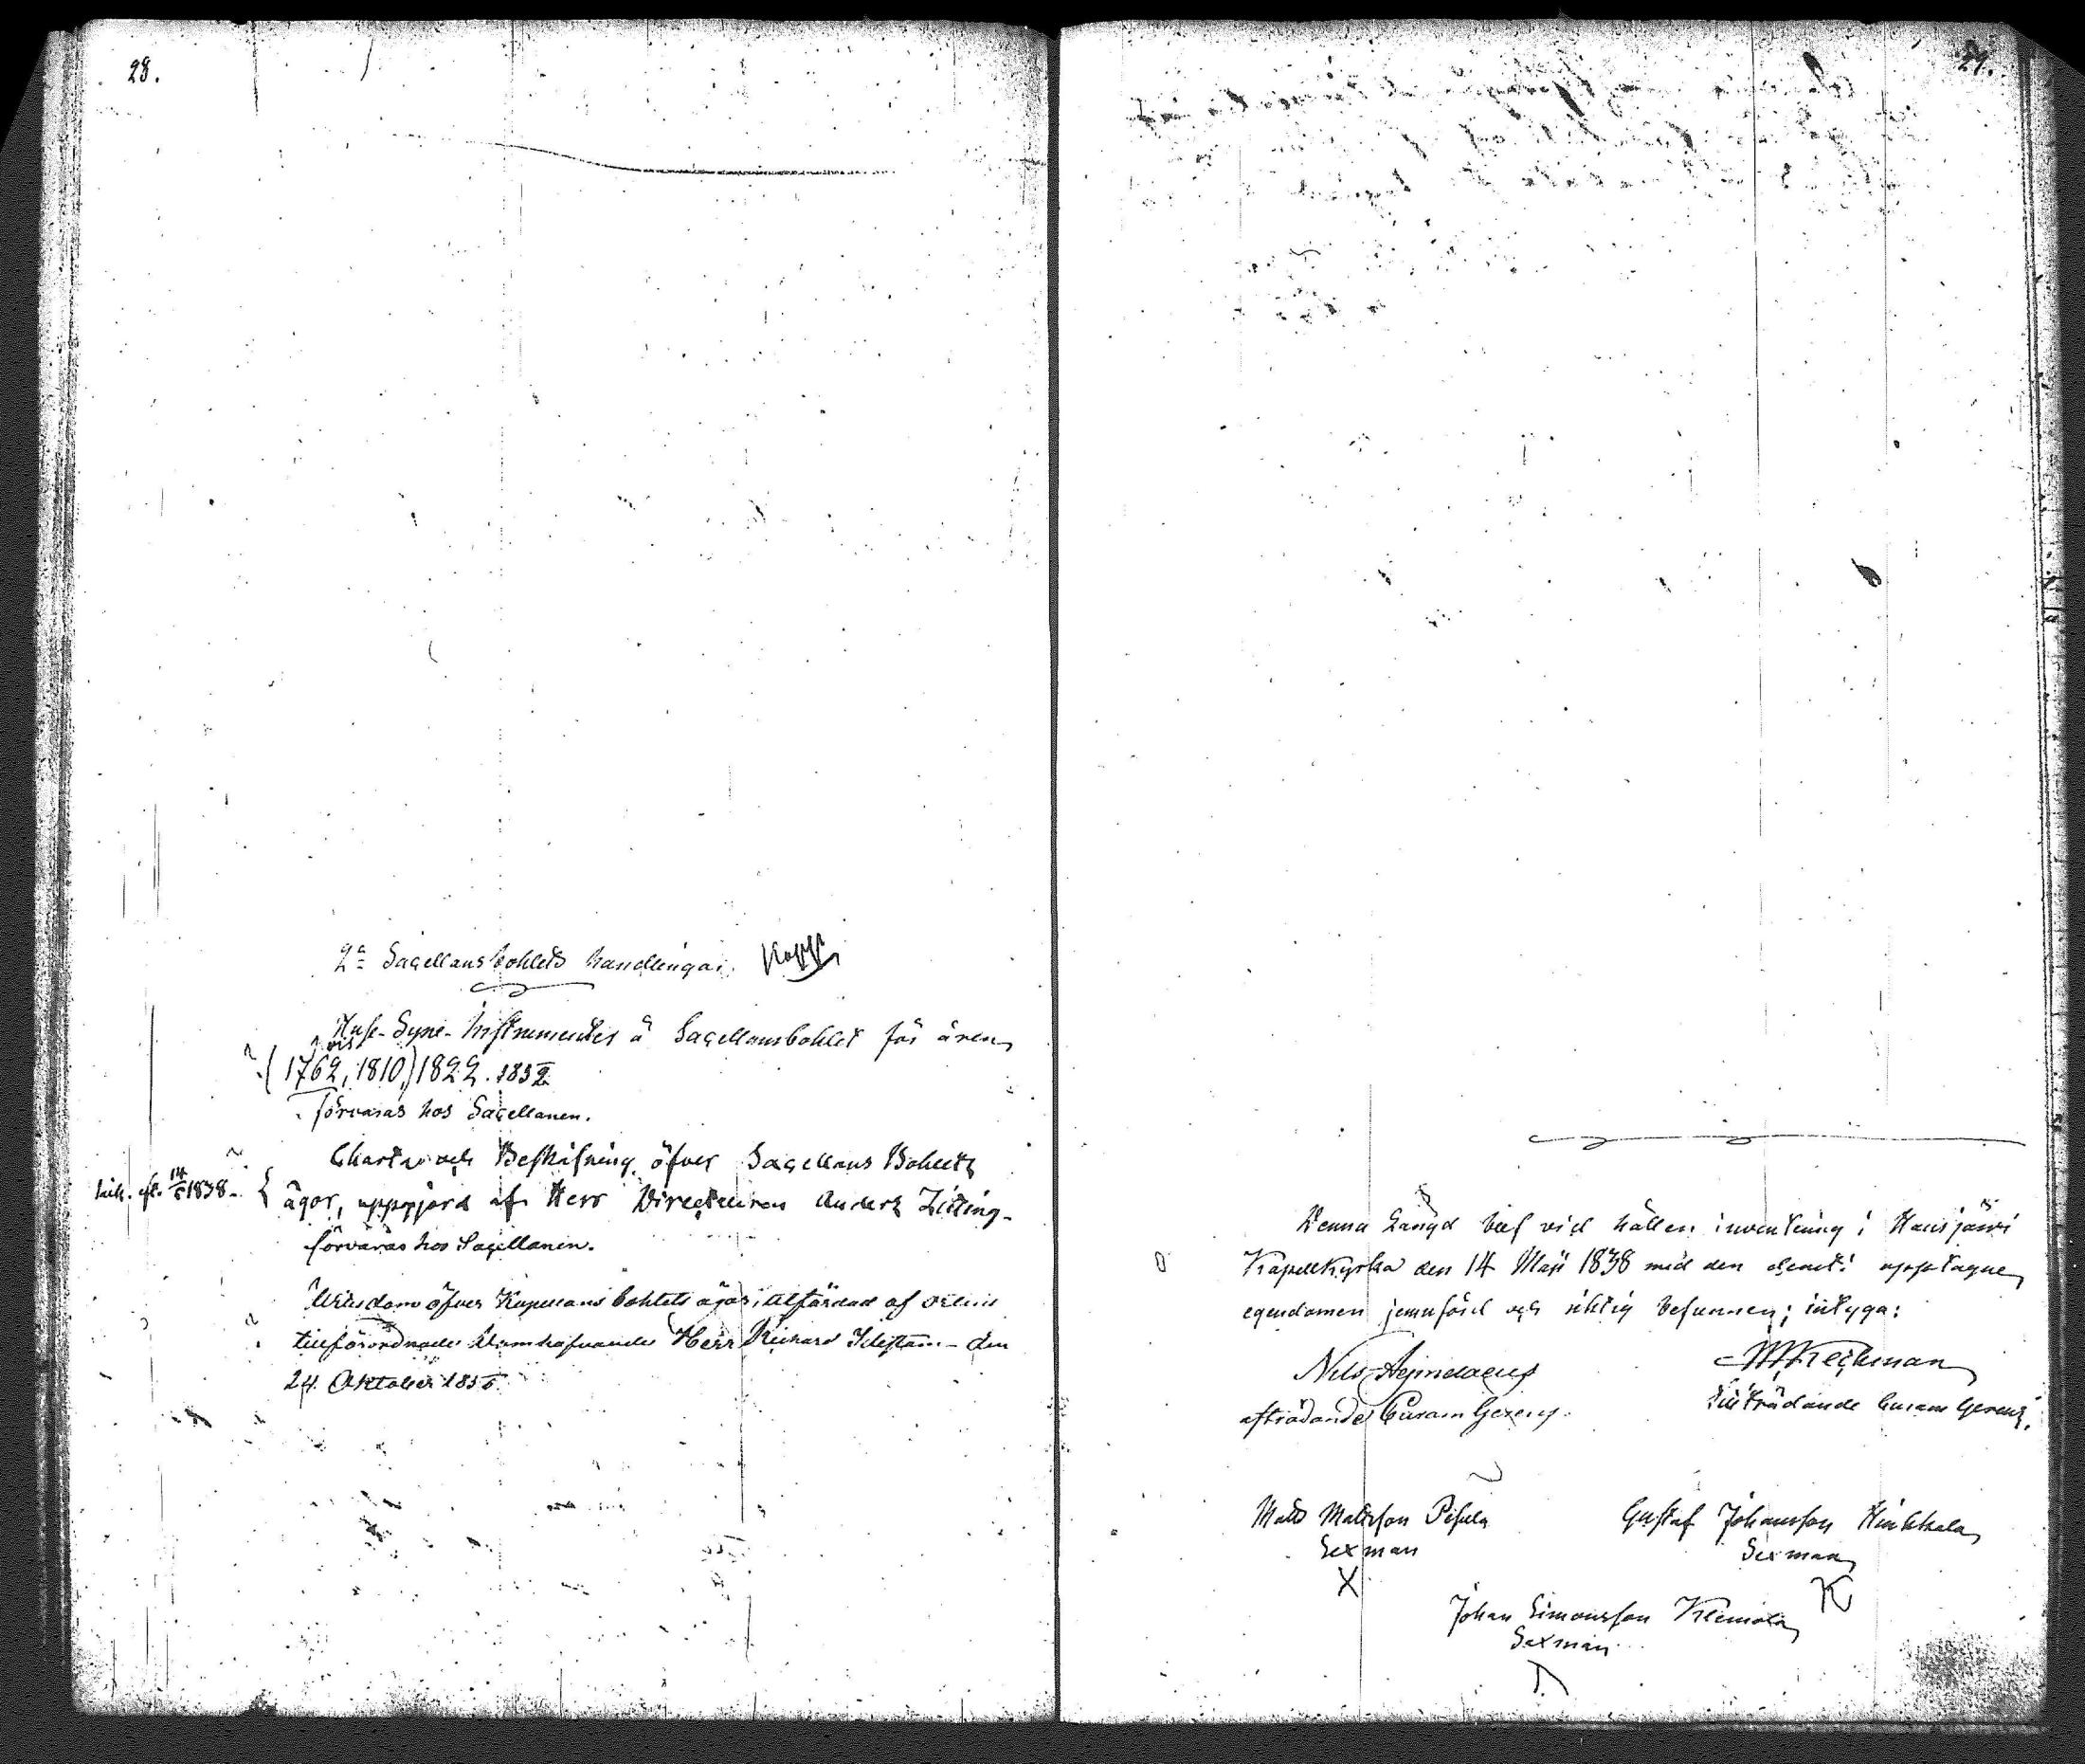 28.
2a Sacellansbohlets handlingar.
Huse-Syne-Instrumenter å Sacellansbohlet för åren
(1762, 1810,) 1822. 1832
förvaras hos Sacellanen.
Charta och Beskrifning öfver Sacellans Bohlets
14/5 1838. ägor, uppgjord af Herr Directeuren Anders Zitting
förvaras hos Sacellanen.
öfver Kapellans bohlets ägor, utfärdad af
tillförordnade Herr Rickard Idestam den
24 Oktober
29.
Denna Längd blef vid hållen inventering i Hausjärvi
Kapellkyrka den 14 Maji 1838 med den upptagne
egendomen jemnförd och riktig befunnen; intyga:
Nils
afträdande Curam Gerens.
Tillträdande Curam Gerens.
Mats Matsson
Sexman
X
Gustaf Johansson
Sexman
K
Johan Simonsson Klemola
Sexman